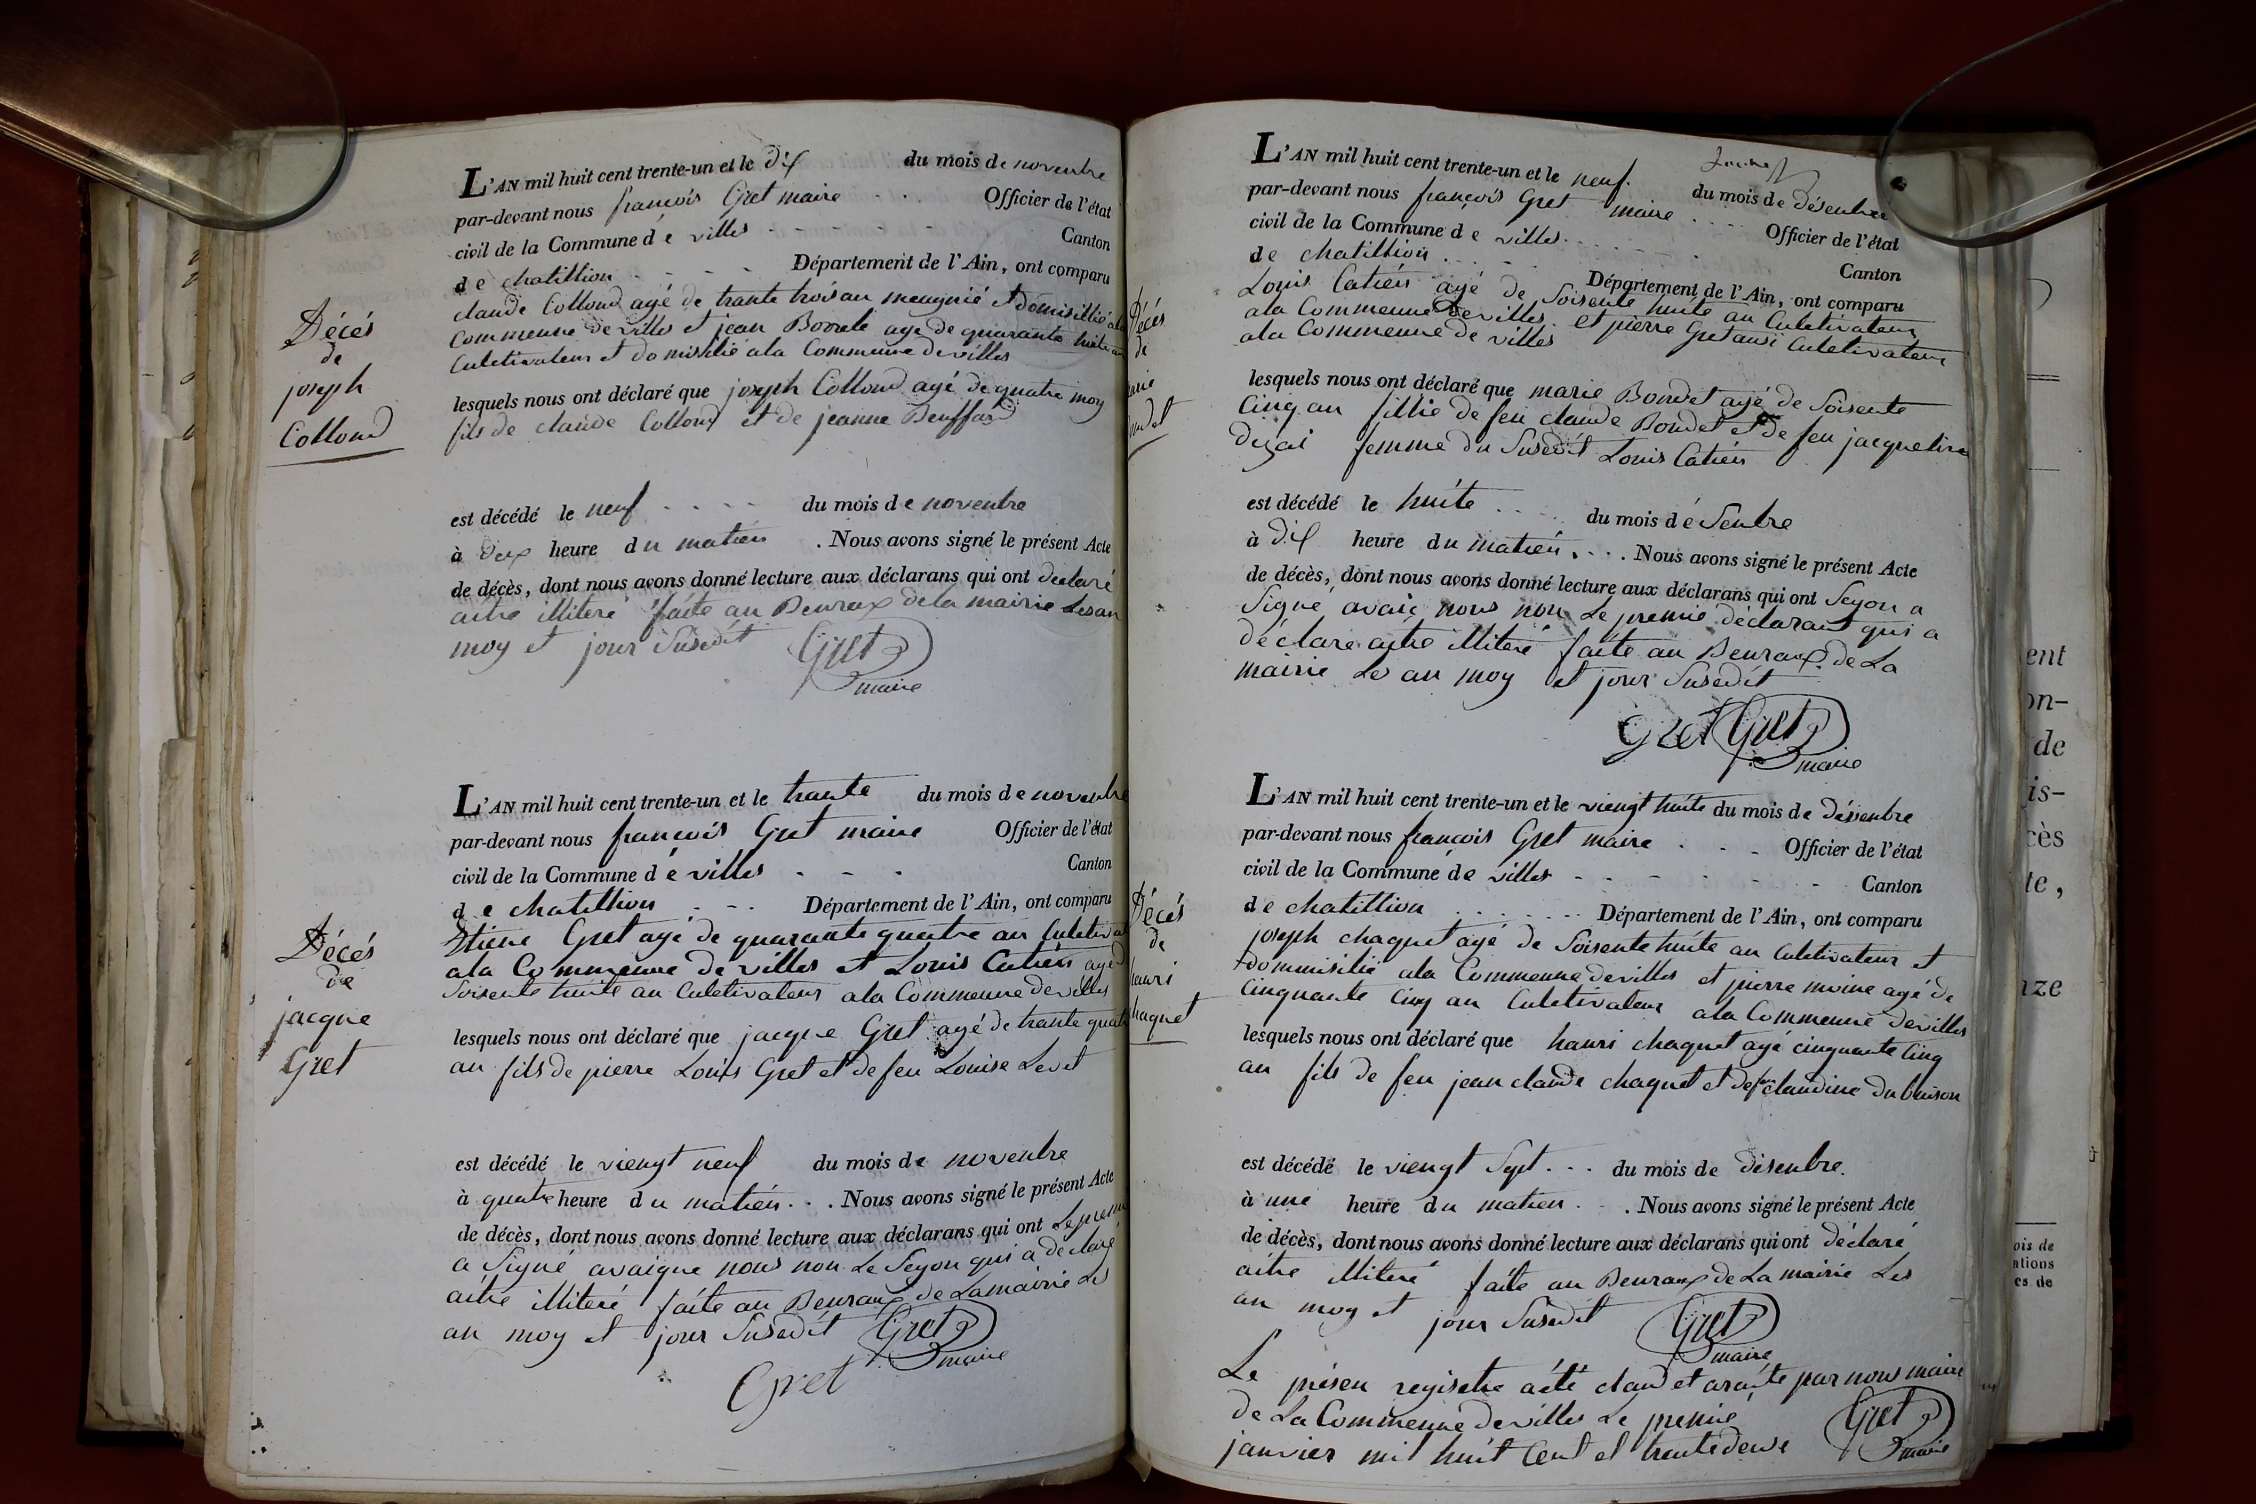 L'AN mil huit cent trente-un et le dix du mois de novenbre
par-devant nous françois Gret maire Officier de l'état
civil de la Commune de villes Canton
de chatillion Département de l'Ain, ont comparu
claude Collond agé de trante trois an meugnié et domisillié ala
Commeune de villes et jean Borrele age de quarante huite an
Culetivateur et domisilié ala Commeune de villes
Décés
de
joseph
Collond
lesquels nous ont déclaré que joseph Collond agé de quatre moy
fils de claude Collond et de jeanne Beuffard
est décédé le neuf du mois de novenbre
à deux heure du matien . Nous avons signé le présent Acte
de décès, dont nous avons donné lecture aux déclarans qui ont declaré
aitre illiteré faite au Beuraux de la mairie Les an
moy et jour Susedit Gret
maire
L'AN mil huit cent trente-un et le trante du mois de novenbre
par-devant nous françois Gret maire Officier de l'état
civil de la Commune dé villes Canton
de chatillion Département de l'Ain, ont comparu
Etiene Gret agé de quarante quatre an Culetivat
ala Commeune de villes et Louis Catien agé d
Soisente huite an Culetivateur ala Commeune de villes
Décés
de
jacque
Gret
lesquels nous ont déclaré que jacque Gret agé de trante quatr
an fils de pierre Louis Gret et de feu Louise Levet
est décédé le viengt neuf du mois de novenbre
à quatre heure du matien . Nous avons signé le présent Acte
de décès, dont nous avons donné lecture aux déclarans qui ont Le premie
a Signé avaique nous non Le Segon qui a declaré
aitre illiteré faite au Beuraux de La mairie Les
an moy et jour Susedit Gret
maire
Gret
L'AN mil huit cent trente-un et le neuf du mois de désenbre
par-devant nous françois Gret maire Officier de l'état
civil de la Commune dé villes Canton
de chatillion Département de l'Ain, ont comparu
Louis Catien agé de Soisente huite an Culetivateur
ala Commeune de villes et pierre Gret ausi Culetivateur
ala Commeune de villes
Décés
de
lesquels nous ont déclaré que marie Bondet agé de Soisente
Cinq an fillie de feu claude Bondet et de feu jacqueline
femme du Susedit Louis Catien
est décédé le huite du mois désenbre
à dix heure du matien . Nous avons signé le présent Acte
de décès, dont nous avons donné lecture aux déclarans qui ont Segon a
Signé avaic nous non Le premie déclarant qui a
déclare aitre illiteré faite au Beuraux de La
mairie Les an moy et jour Susedit
Gret Gret
maire
L'AN mil huit cent trente-un et le viengt huite du mois de désenbre
par-devant nous françois Gret maire Officier de l'état
civil de la Commune de villes Canton
de chatillion Département de l'Ain, ont comparu
joseph chaquet agé de Soisente huite an Culetivateur et
dommisilié ala Commeune de villes et pierre moine agé de
Cinquante Cinq an Culetivateur ala Commeune de villes
Décés
de
hanri
haquet
lesquels nous ont déclaré que hanri chaquet agé cinquante Cinq
an fils de feu jean claude chaquet et de feu claudine du buison
est décédé le viengt Sept du mois de désenbre
à une heure du matien . Nous avons signé le présent Acte
de décès, dont nous avons donné lecture aux déclarans qui ont déclaré
aitre illiteré faite au Beuraux de La mairie Les
an moy et jour Susedit Gret
maire
Le présen registre aété claud et araite par nous maire
de La Commeune de villes Le premié
janvier mil huit Cent et trente deuse Gret
maire
ent
on-
de
is-
cès
te,
nze
ois de
ations
es de